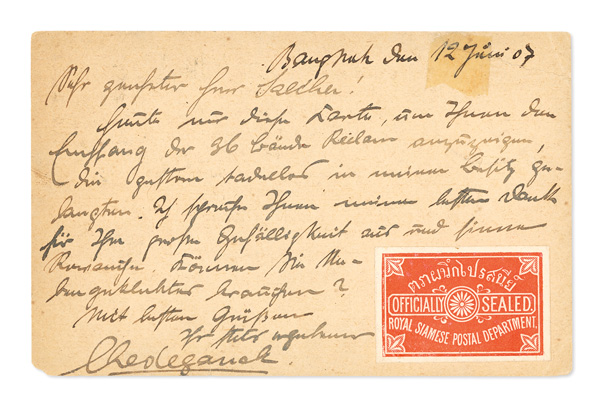 Bangkok den 12 Juni 07
Sehr geehrter Herr
Heute nur diese Karte, um Ihnen den
Empfang der 36 Bände Reclam anzuzeigen,
die gestern tadellos in meinen Besitz ge-
langten. Ich spreche Ihnen meinen besten Dank
für Ihre große Gefälligkeit aus und sinne
Revanche. Können Sie
brauchen?
Mit besten Grüßen
Ihr stets ergebener
ตราผนึกไปรสนีย์
OFFICIALLY SEALED.
ROYAL SIAMESE POSTAL DEPARTMENT.